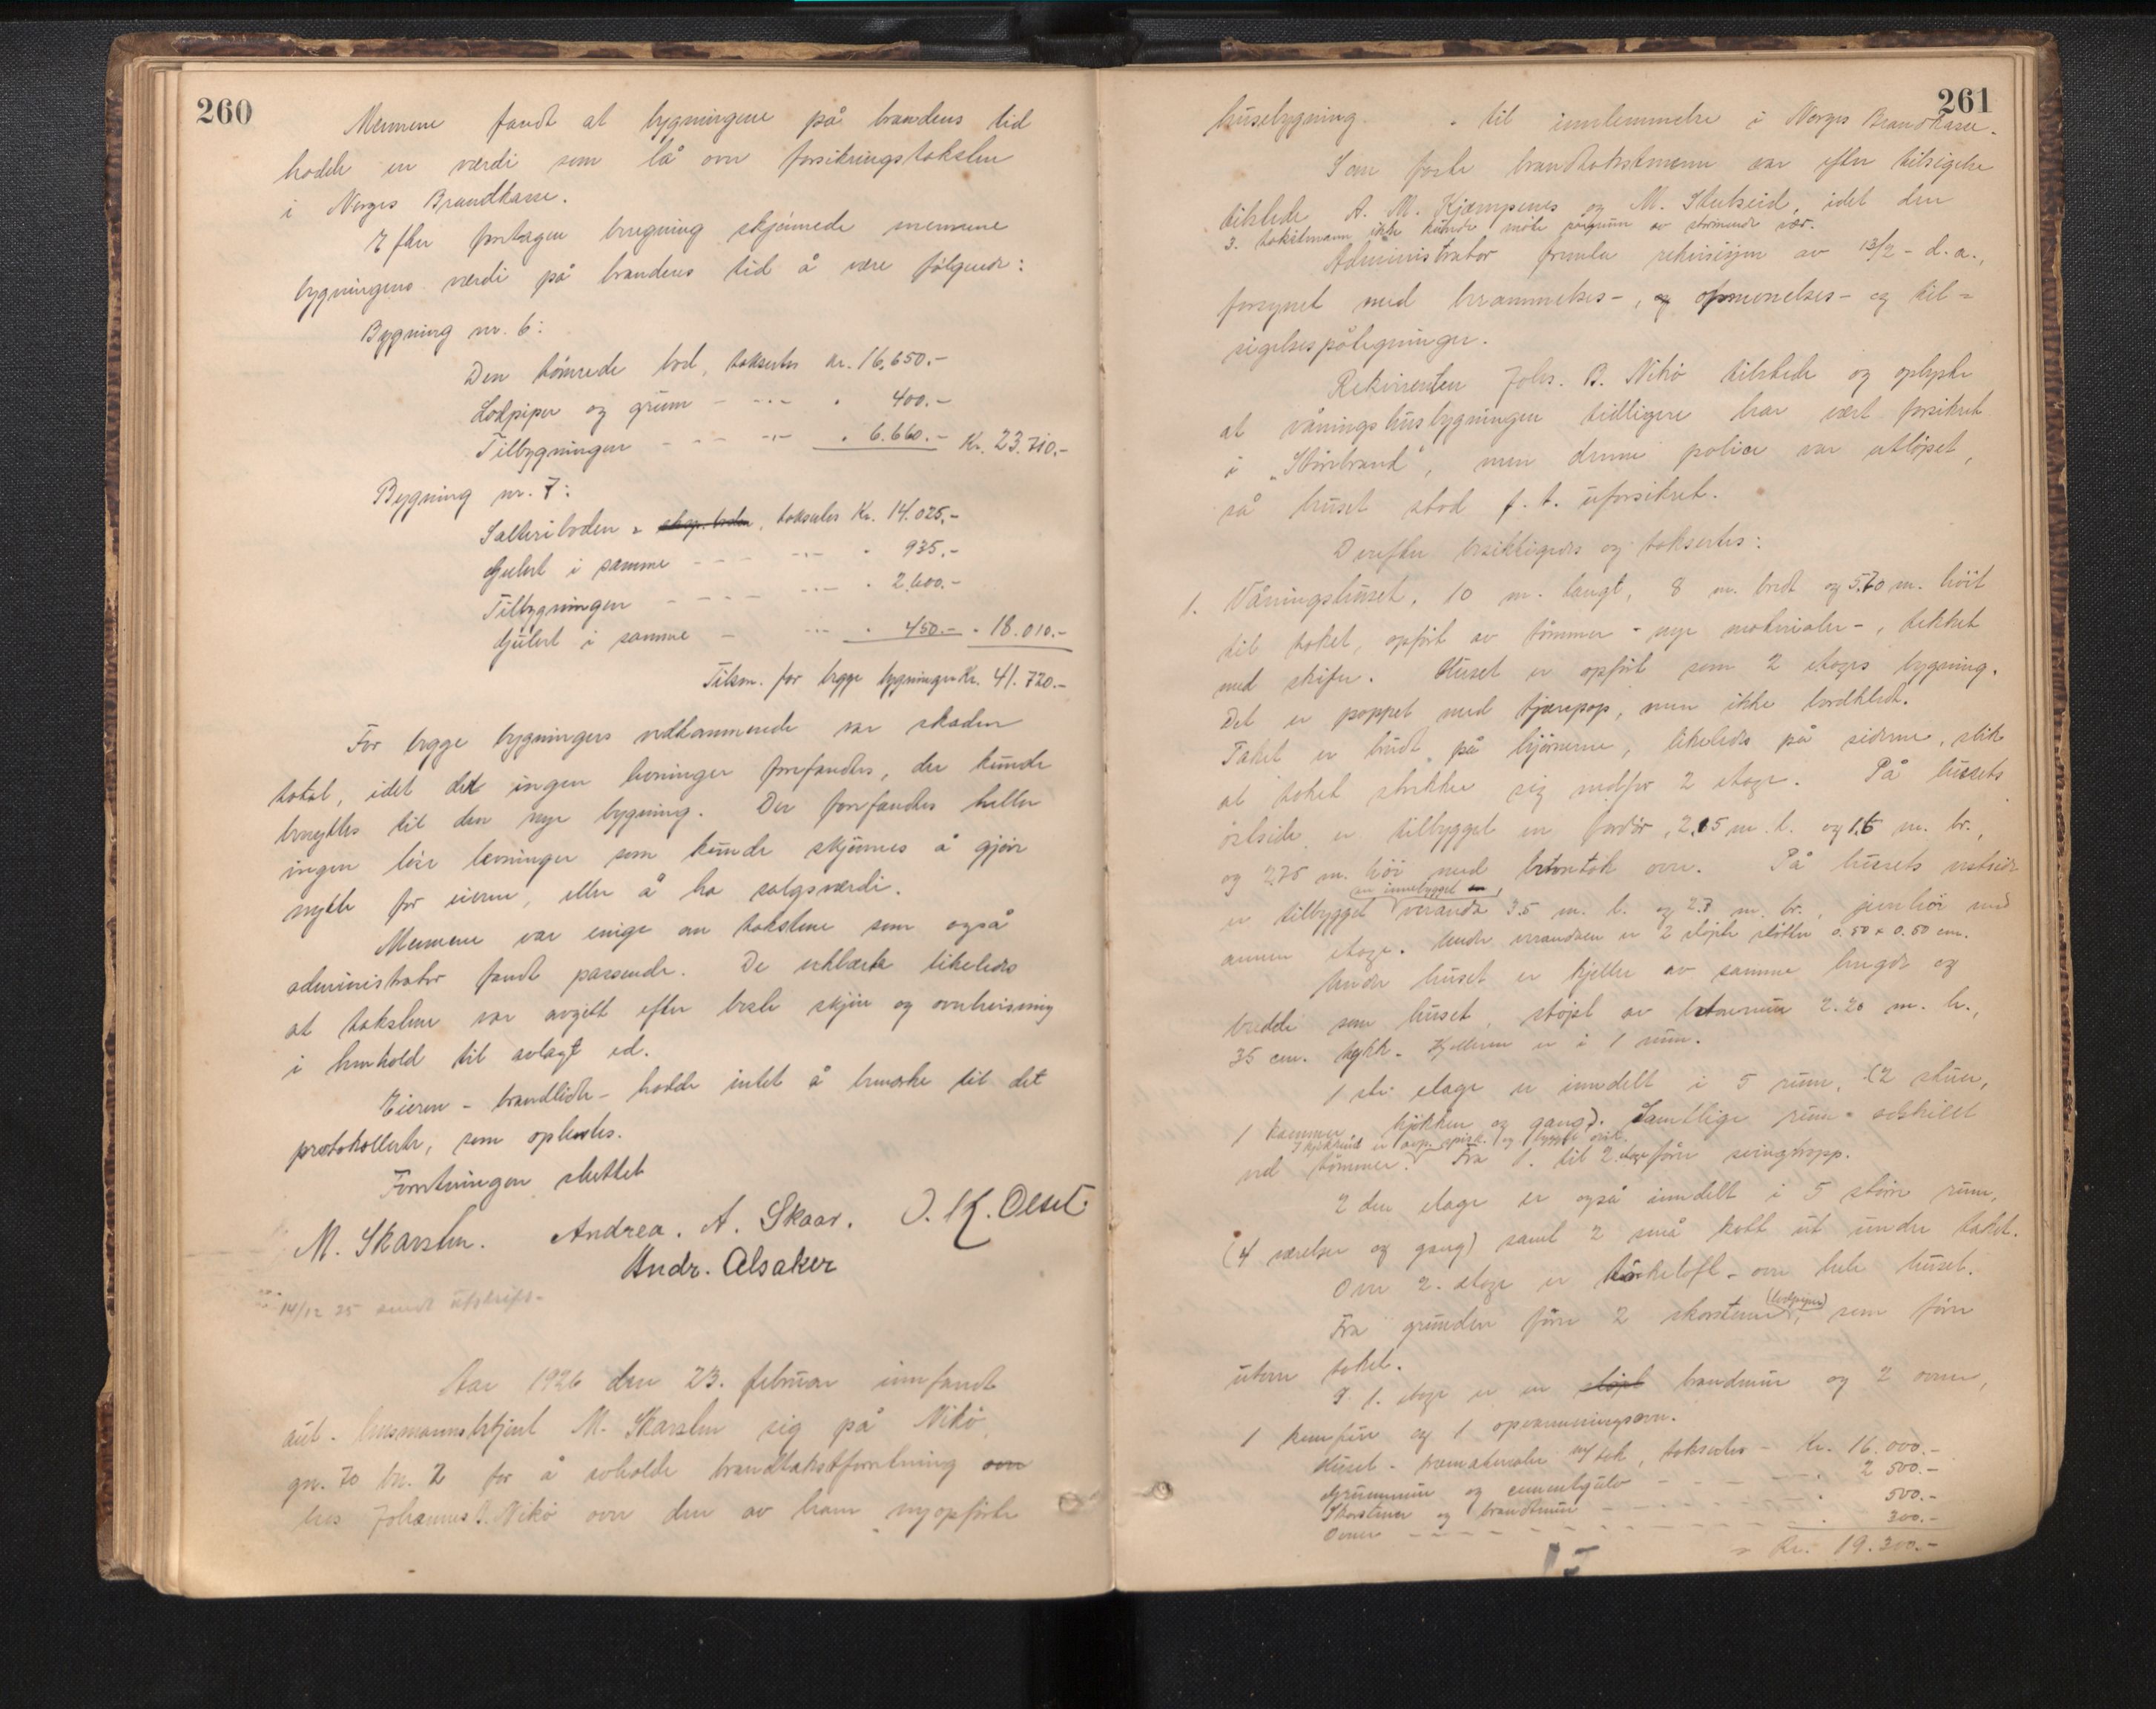 260
Mennene fandt at bygningene på brandens tid
hadde en værdi som lå over forsikringstakster
i Norges Brandkasse.
Efter foretagen beregning skjønnede mennene
bygningens værdi på brandens tid å være følgende:
Bygning nr. 6:
Den tømrede bod, taksertes kr. 16.650.-
Lodpiper og grunn - -.- " 400.-
Tilbygningen - - - -.- " 6.660.- Kr. 23.710.-
Bygning nr. 7:
Salteriboden, taksertes Kr. 14.025.-
Gulvet i samme - - - -.- " 935.-
Tilbygningen - - - - -.- " 2.600.-
Gulvet i samme - -.- " 450.- " 18.010.-
Tilsm. for begge bygninger Kr. 41.720.-
For begge bygningers vedkommende var skaden
total, idet det ingen levninger forefandtes, der kunde
benyttes til den nye bygning. Der forefandtes heller
ingen løse levninger som kunde skjønnes å gjøre
nytte for eieren, eller å ha salgsværdi.
Mennene var enige om takstene som også
administrator fandt passende. De erklærte likeledes
at takstene var avgitt efter beste skjøn og overbevisning
i henhold til avlagt ed.
Eieren - brandlidte - hadde intet å bemerke til det
protokollerte, som oplæstes.
Forretningen sluttet
M. Skarsten. Andrea. A. Skaar. O. K. Olset.
Andr. Alsaker
14/12 25 sendt utskrift-
Aar 1926 den 23. februar innfandt
aut. lensmannsbetjent M. Skarsten sig på Nikø
gn. 70 bn. 2 for å avholde brandtakstforretning
hos Johannes B. Nikø over den av ham nyopførte
261
husebygning - til innlemmelse i Norges Brandkasse.
Som faste brandtakstmenn var efter tilsigelse
tilstede A. M. Kjæmpenes og M. Skutseid, idet den
3. takstmann ikke kunde møte pågrunn av stormende vær.
Administrator fremla rekvisisjon av 13/2 - d.a.,
forsynet med berammelses-, opnevnelses- og til-
sigelsespåtegninger.
Rekvirenten Johs. B. Nikø tilstede og oplyste
at våningshusbygningen tidligere har vært forsikret
i "Storebrand", men denne police var utløpet,
så huset stod f.t. uforsikret.
Derefter besiktigedes og taksertes:
1. Våningshuset, 10 m. langt, 8 m. bredt og 5.70 m. høit
til taket, opført av tømmer - nye materialer -, tekket
med skifer. Huset er opført som 2 etages bygning.
Det er pappet med tjærepap, men ikke bordklædt.
Taket er brudt på hjørnerne, likeledes på siderne, slik
at taket strekker sig nedfor 2 etage. På husets
østside er tilbygget en fordør, 2.15 m. l. og 1.6 m. br.,
og 2.75 m. høi med betontak over. På husets vestside
er tilbygget en innebygget veranda 3.5 m. l. og 2.7 m. br., jevnhøi med
annen etage. Under verandaen er 2 støpte støtter 0.50 x 0.50 cm.
Under huset er kjeller av samme lengde og
bredde som huset, støpt av betonmur 2.20 m. h.,
35 cm. tykk. Kjelleren er i 1 rum.
1ste etage er inndelt i 5 rum, (2 stuer,
1 kammer, kjøkken og gang). Samtlige rum adskillt
ved tømmer. Fra 1. til 2. etage fører svingtrapp.
2den etage er også inndelt i 5 større rum,
(4 værelser og gang) samt 2 små kott ut under taket.
Over 2. etage er tørkeloft - over hele huset.
Fra grunden fører 2 skorstener (lodpiper), som fører
utover taket.
I 1. etage er en brandmur og 2 ovner,
1 komfur og 1 opvarmningsovn.
Huset - træmaterialer m/ tak, taksertes - Kr. 16.000.-
Grunnmur og cementgulv - - - " 2 500.-
Skorstener og brandmur - - - - " 500.-
Ovner - - - - - - - - - - 300.-
= Kr. 19.300.-